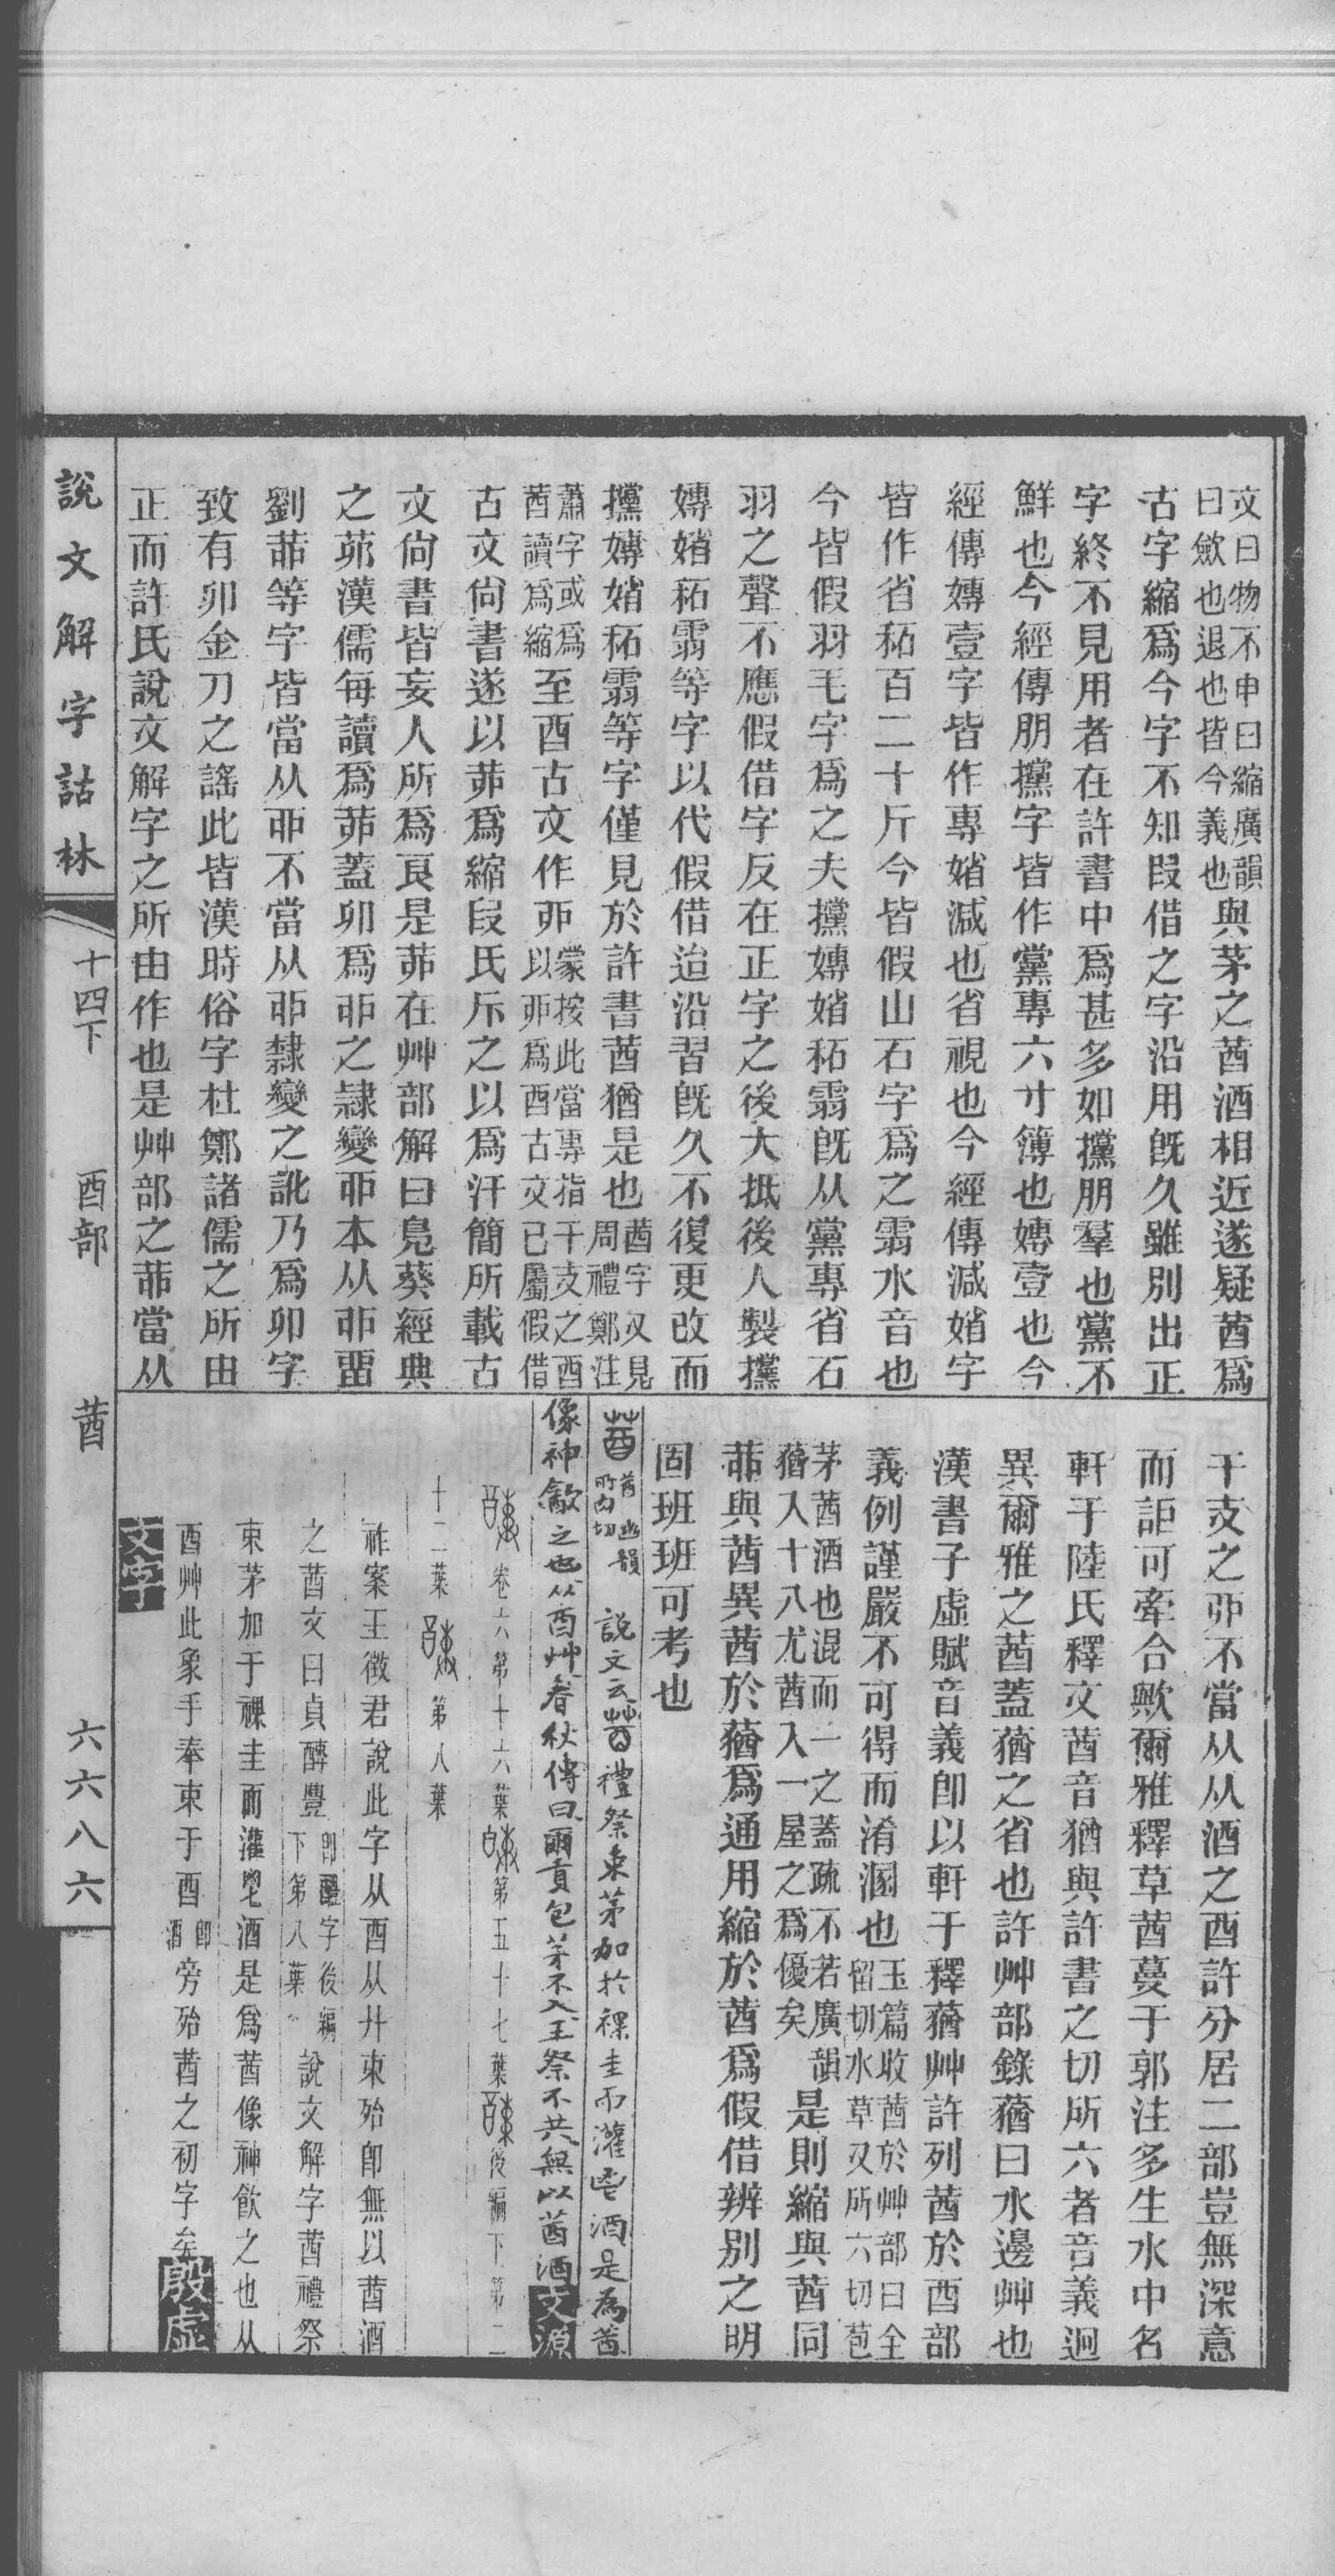 文曰物不申曰縮廣韻
曰斂也退也皆今義也與茅之莤酒相近遂疑莤爲
古字縮爲今字不知叚借之字沿用旣久雖別出正
字終不見用者在許書中爲甚多如攩朋羣也黨不
鮮也今經傳朋攩字皆作黨專六寸簿也嫥壹也今
經傳嫥壹字皆作專媘減也省視也今經傳減媘字
皆作省䄷百二十斤今皆假山石字爲之䨒水音也
今皆假羽毛字爲之夫攩嫥媘䄷䨒旣从黨專省石
羽之聲不應假借字反在正字之後大抵後人製攩
嫥媘䄷䨒等字以代假借迨沿習旣久不復更改而
攩嫥媘䄷䨒等字僅見於許書莤猶是也莤字又見周禮鄭注
蕭字或爲莤讀爲縮至酉古文作丣蒙按此當專指干支之酉以丣爲酉古文已屬假借
古文尙書遂以茆爲縮段氏斥之以爲汗簡所載古
文尙書皆妄人所爲良是茆在艸部解曰鳧葵經典
之茆漢儒每讀爲茆蓋卯爲戼之隷變丣本从戼畱
劉茆等字皆當从丣不當从戼隸變之訛乃爲卯字
致有卯金刀之謠此皆漢時俗字杜鄭諸儒之所由
正而許氏說文解字之所由作也是艸部之茆當从
干支之丣不當从从酒之酉許分居二部豈無深意
而詎可牽合歟爾雅釋草莤蔓于郭注多生水中名
軒于陸氏釋文莤音猶與許書之切所六者音義迥
異爾雅之莤蓋蕕之省也許艸部錄蕕曰水邊艸也
漢書子虛賦音義卽以軒于釋蕕艸許列莤於酉部
義例謹嚴不可得而淆溷也玉篇收莤於艸部曰全留切水草又所六切苞
茅莤酒也混而一之蓋疏不若廣韻蕕入十八尤莤入一屋之爲優矣是則縮與莤同
茆與莤異莤於蕕爲通用縮於莤爲假借辨別之明
固班班可考也
莤 幽韻 所六切 說文云莤禮祭束茅加於祼圭而灌鬯酒是爲莤
像神歆之也从酉艸春秋傳曰爾貢包茅不入王祭不共無以莤酒文源
卷六第十六葉 第五十七葉 後編下第二
十二葉 第八葉
祚案王徵君說此字从酉从廾束殆卽無以莤酒
之莤文曰貞醻豐卽醴字後編下第八葉說文解字莤禮祭
束茅加于祼圭而灌鬯酒是爲莤像神飮之也从
酉艸此象手奉束于酉卽酒旁殆莤之初字矣殷虛
文字
說文解字詁林
十四下 酉部 莤 六六八六